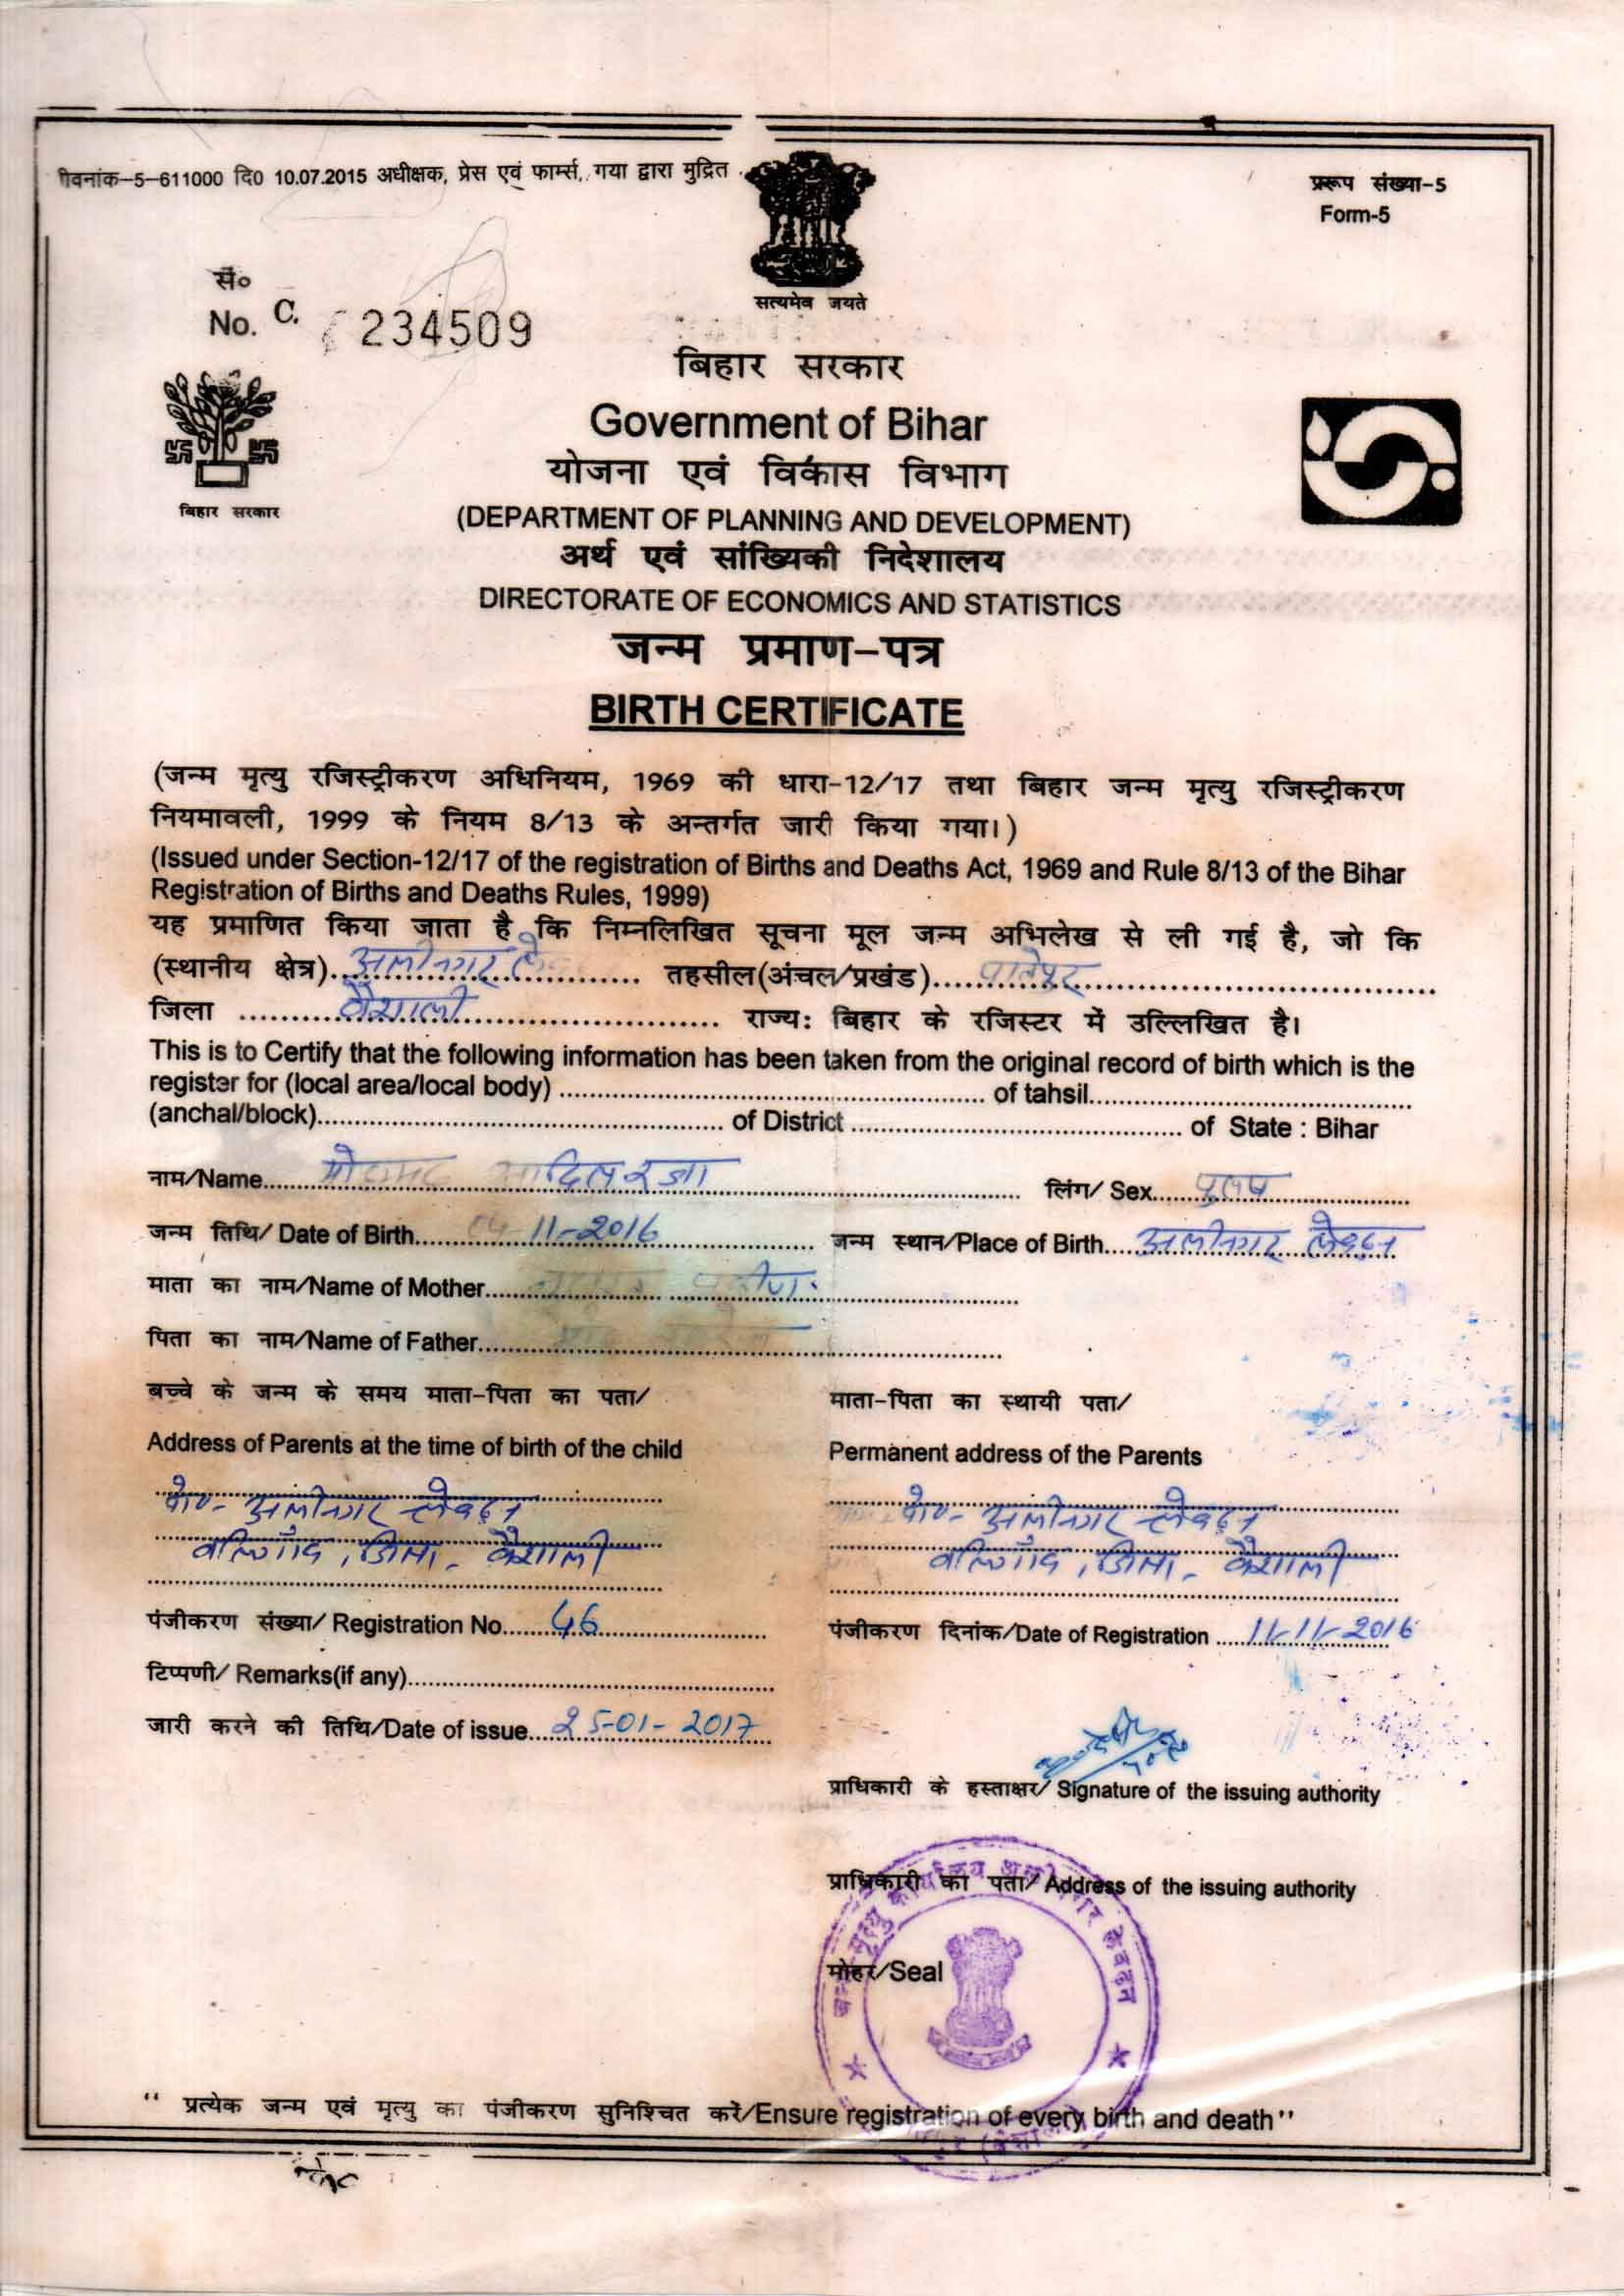 पीवनांक-5-611000 दि0 10.07.2015 अधीक्षक, प्रेस एवं फार्म्स, गया द्वारा मुद्रित
प्ररूप संख्या-5
Form-5
सं०
No. C. 234509
सत्यमेव जयते
बिहार सरकार
बिहार सरकार
Government of Bihar
योजना एवं विकास विभाग
(DEPARTMENT OF PLANNING AND DEVELOPMENT)
अर्थ एवं सांख्यिकी निदेशालय
DIRECTORATE OF ECONOMICS AND STATISTICS
जन्म प्रमाण-पत्र
BIRTH CERTIFICATE
(जन्म मृत्यु रजिस्ट्रीकरण अधिनियम, 1969 की धारा-12/17 तथा बिहार जन्म मृत्यु रजिस्ट्रीकरण
नियमावली, 1999 के नियम 8/13 के अन्तर्गत जारी किया गया।)
(Issued under Section-12/17 of the registration of Births and Deaths Act, 1969 and Rule 8/13 of the Bihar
Registration of Births and Deaths Rules, 1999)
यह प्रमाणित किया जाता है कि निम्नलिखित सूचना मूल जन्म अभिलेख से ली गई है, जो कि
(स्थानीय क्षेत्र) अलीनगर तहसील(अंचल/प्रखंड) पातेपुर
जिला वैशाली राज्य: बिहार के रजिस्टर में उल्लिखित है।
This is to Certify that the following information has been taken from the original record of birth which is the
register for (local area/local body) of tahsil
(anchal/block) of District of State : Bihar
नाम/Name आदिल रजा लिंग/ Sex पुरुष
जन्म तिथि/ Date of Birth 11-2016 जन्म स्थान/Place of Birth अलीनगर लेवढ़न
माता का नाम/Name of Mother
पिता का नाम/Name of Father
बच्चे के जन्म के समय माता-पिता का पता/
Address of Parents at the time of birth of the child
पो०- अलीनगर लेवढ़न
बलिगाँव, जिला- वैशाली
माता-पिता का स्थायी पता/
Permanent address of the Parents
पो०- अलीनगर लेवढ़न
बलिगाँव, जिला- वैशाली
पंजीकरण संख्या/ Registration No. 46 पंजीकरण दिनांक/Date of Registration 11-11-2016
टिप्पणी/ Remarks(if any)
जारी करने की तिथि/Date of issue 25-01-2017
प्राधिकारी के हस्ताक्षर/ Signature of the issuing authority
प्राधिकारी का पता/ Address of the issuing authority
मोहर/Seal
" प्रत्येक जन्म एवं मृत्यु का पंजीकरण सुनिश्चित करें/Ensure registration of every birth and death"